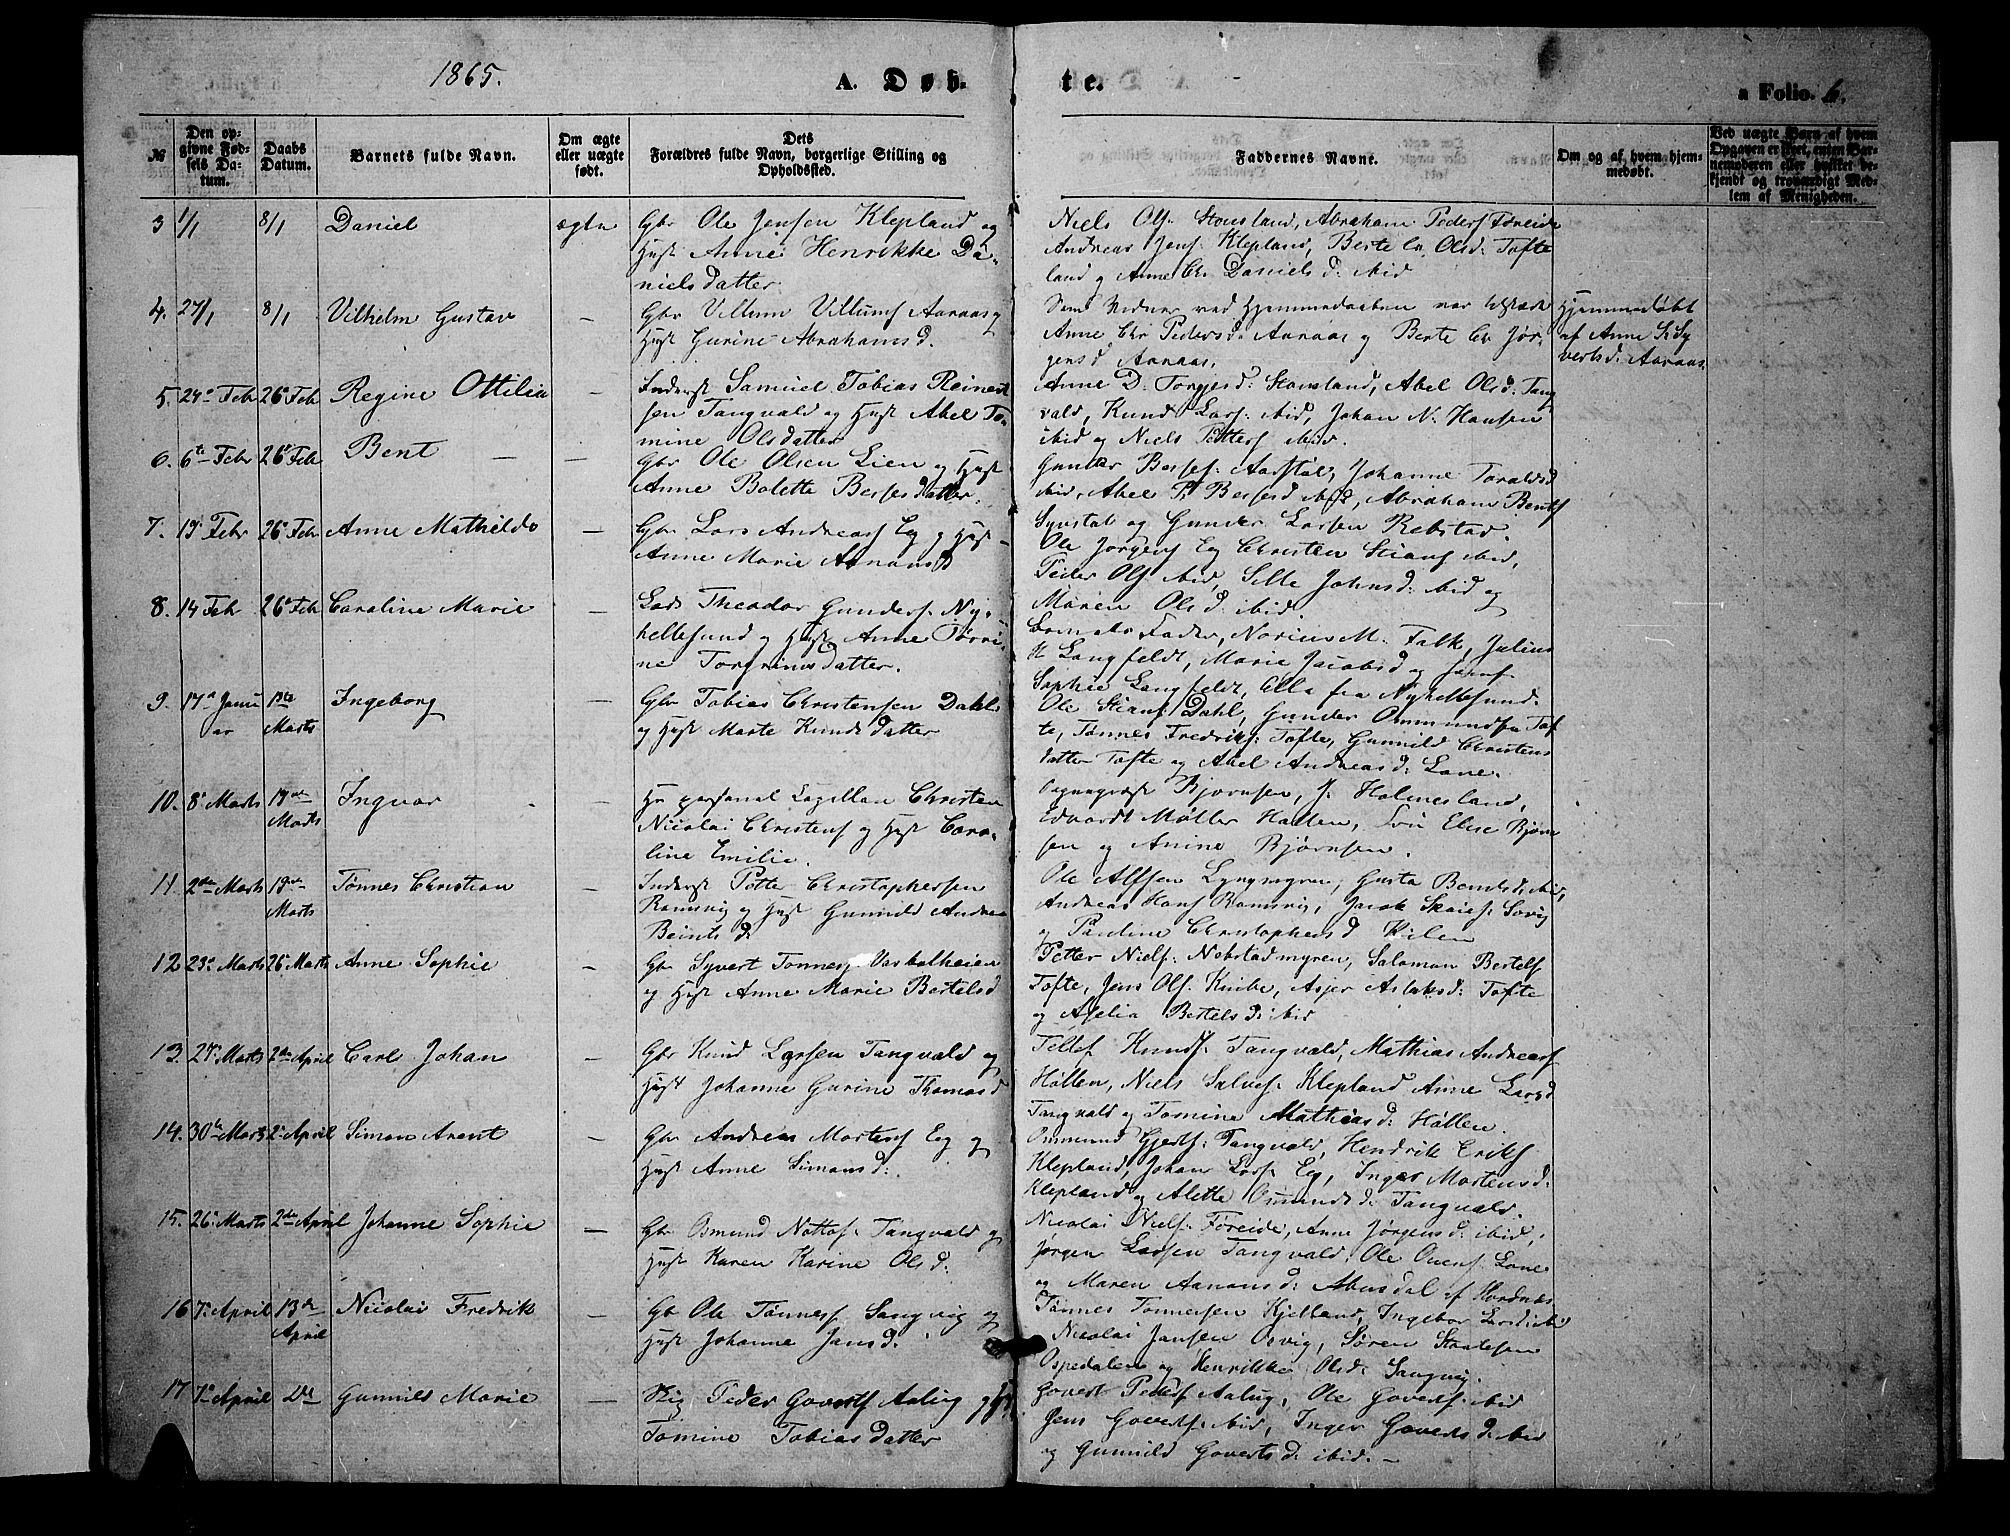 1865.
A. Døb-
te.
a Folio. 6.
№
Den op-
givne Fød-
sels Da-
tum.
Daabs
Datum.
Barnets fulde Navn.
Om ægte
eller uægte
født.
Dets
Forældres fulde Navn, borgerlige Stilling og
Opholdssted.
Faddernes Navne.
Om og af hvem hjem-
medøbt.
Ved uægte Barn af hvem
Opgaven er skeet, enten Bar-
nemoderen eller hvilket be-
kjendt og troværdigt Med-
lem af Menigheden.
3 1/1 8/1 Daniel ægte Gbr Ole Jensen Klepland og
Hust Anne Henrikke Da-
nielsdatter.
Niels Ols: Stousland, Abraham Peders Føreide
Andreas Jens: Klepland, Berte Olsd: Tofte
land og Anne Chr Daniels d: ibid
4. 27/1 8/1 Vilhelm Gustav — Gbr Villum Villums Aaraas og
Hust Gurine Abrahams d.
Som Vidner ved Hjemmedaaben var tilstede
Anne Chr Peders d. Aaraas og Berte Chr Jør-
gens d Aaraas.
Hjemmedøbt
af Anne S. Sy
verts d: Aaraas
5. 24 Febr 26 Feb Regine Ottilia — Inderst Samuel Tobias Reinert
sen Tangvald og Hust Abel To-
mine Olsdatter
Anne D: Torgjes d: Stousland, Abel Olsd: Tang
vald, Knud Lars: ibid, Johan N. Hansen
ibid og Niels Petters ibid.
6. 6te Febr 26 Feb Bent — — Gbr Ole Olsen Lien og Hust
Anne Bolette Berses datter.
Gunder Berses: Aarstøl, Johanne Toralds d
ibid, Abel P. Berses d ibid, Abraham Bents
Synstal og Gunder Larsen Rebstad.
7. 19 Febr 26 Feb Anne Mathilde — Gbr Lars Andreas Eg og Hust
Anne Marie Aanons d
Ole Jørgens Eg Christen Stians ibid,
Peder Ols ibid, Sille Johns d: ibid og
Maren Ols d: ibid.
8. 14 Feb 26 Feb Caroline Marie — Lods Theodor Gunders: Ny-
hellesund og Hust Anne Torri-
ne Torgrims datter.
Barnets Fader, Norius M. Falk, Julius
K Langfeldt, Marie Jacobs d og
Sophie Langfeldt, Alla fra Nyhellesund.
9. 17 Janu
ar
Marts Ingeborg — Gbr Tobias Christensen Dahl
og Hust Marte Knuds datter
Ole Stians Dahl, Gunder Ommunds Tof
te, Tønnes Fredriks: Tofte, Gunnild Christens
datter Tofte og Abel Andreas d: Lone.
10. 8 Marts 19de
Marts Ingvar — Hr personal Capellan Christen
Nicolai Christens og Hust Caro-
line Emilie.
Sogneprest Bjørnsen, J. Holmesland,
Edvardt Møller Hallen, Elise Bjørn
sen og Anine Bjørnsen.
11. 2den Marts 19de
Marts Tønnes Christian — Inderst Petter Christophersen
Ramsvig og Hust Gunnild Andrea
Beints d.
Ole Alfsen Lyngmyren, Gusta Bernts d: ibid,
Andreas Hans Ramsvig, Jacob Skaies: Søvig
og Pauline Christophers d Kilen
12 23 Marts 26 Marts Anne Sophie — Gbr Syvert Tonnes: Vaskalheien
og Hust Anne Marie Bertels d
Petter Niels: Nebstadmyren, Salomon Bertels
Tofte, Jens Ols: Knibe, Asjer Aslaks d: Tofte
og Aselia Bertels d: ibid
13. 27 Marts 2den April Carl Johan — Gbr Knud Larsen Tangvald og
Hust Johanne Gurine Thomas d
Tellef Knuds: Tangvald, Mathias Andreas
Høllen, Niels Salves: Klepland Anne Lars d
Tangvald og Tomine Mathias d: Høllen.
14. 30te Marts 2 April Simon Arent — Gbr Andreas Mortens Eg og
Hust Anne Simons d:
Ommund Gjerts: Tangvald, Hendrik Eriks
Klepland, Johan Lars: Eg, Inger Mortens d:
Klepland og Alette Omunds d: Tangvald.
15. 26 Marts 2den April Johanne Sophie — Gbr Osmund Nottos: Tangvald og
Hust Karen Karine Ols d:
Nicolai Niels: Føreide, Anne Jørgens d: ibid,
Jørgen Larsen Tangvald Ole Ouens: Lone
og Maren Aanons d: Abusdal af Hordnes
16 7 April 13de
April Nicolai Fredrik — Gbr Ole Tønnes: Sangvig og
Hust Johanne Jens d.
Tønnes Tonnesen Kjelland, Ingebor Lars d ibid
Nicolai Jansen Osvig, Søren Staalesen
Ospedalen og Henrikke Ols d: Sangvig.
17 7 April Do Gunnild Marie — Peder Goverts Aalug og H.
Tomine Tobias datter
Govert Peders Aalug, Ole Goverts: ibid
Jens Goverts: ibid, Inger Goverts d: ibid
og Gunnild Goverts d: ibid. —